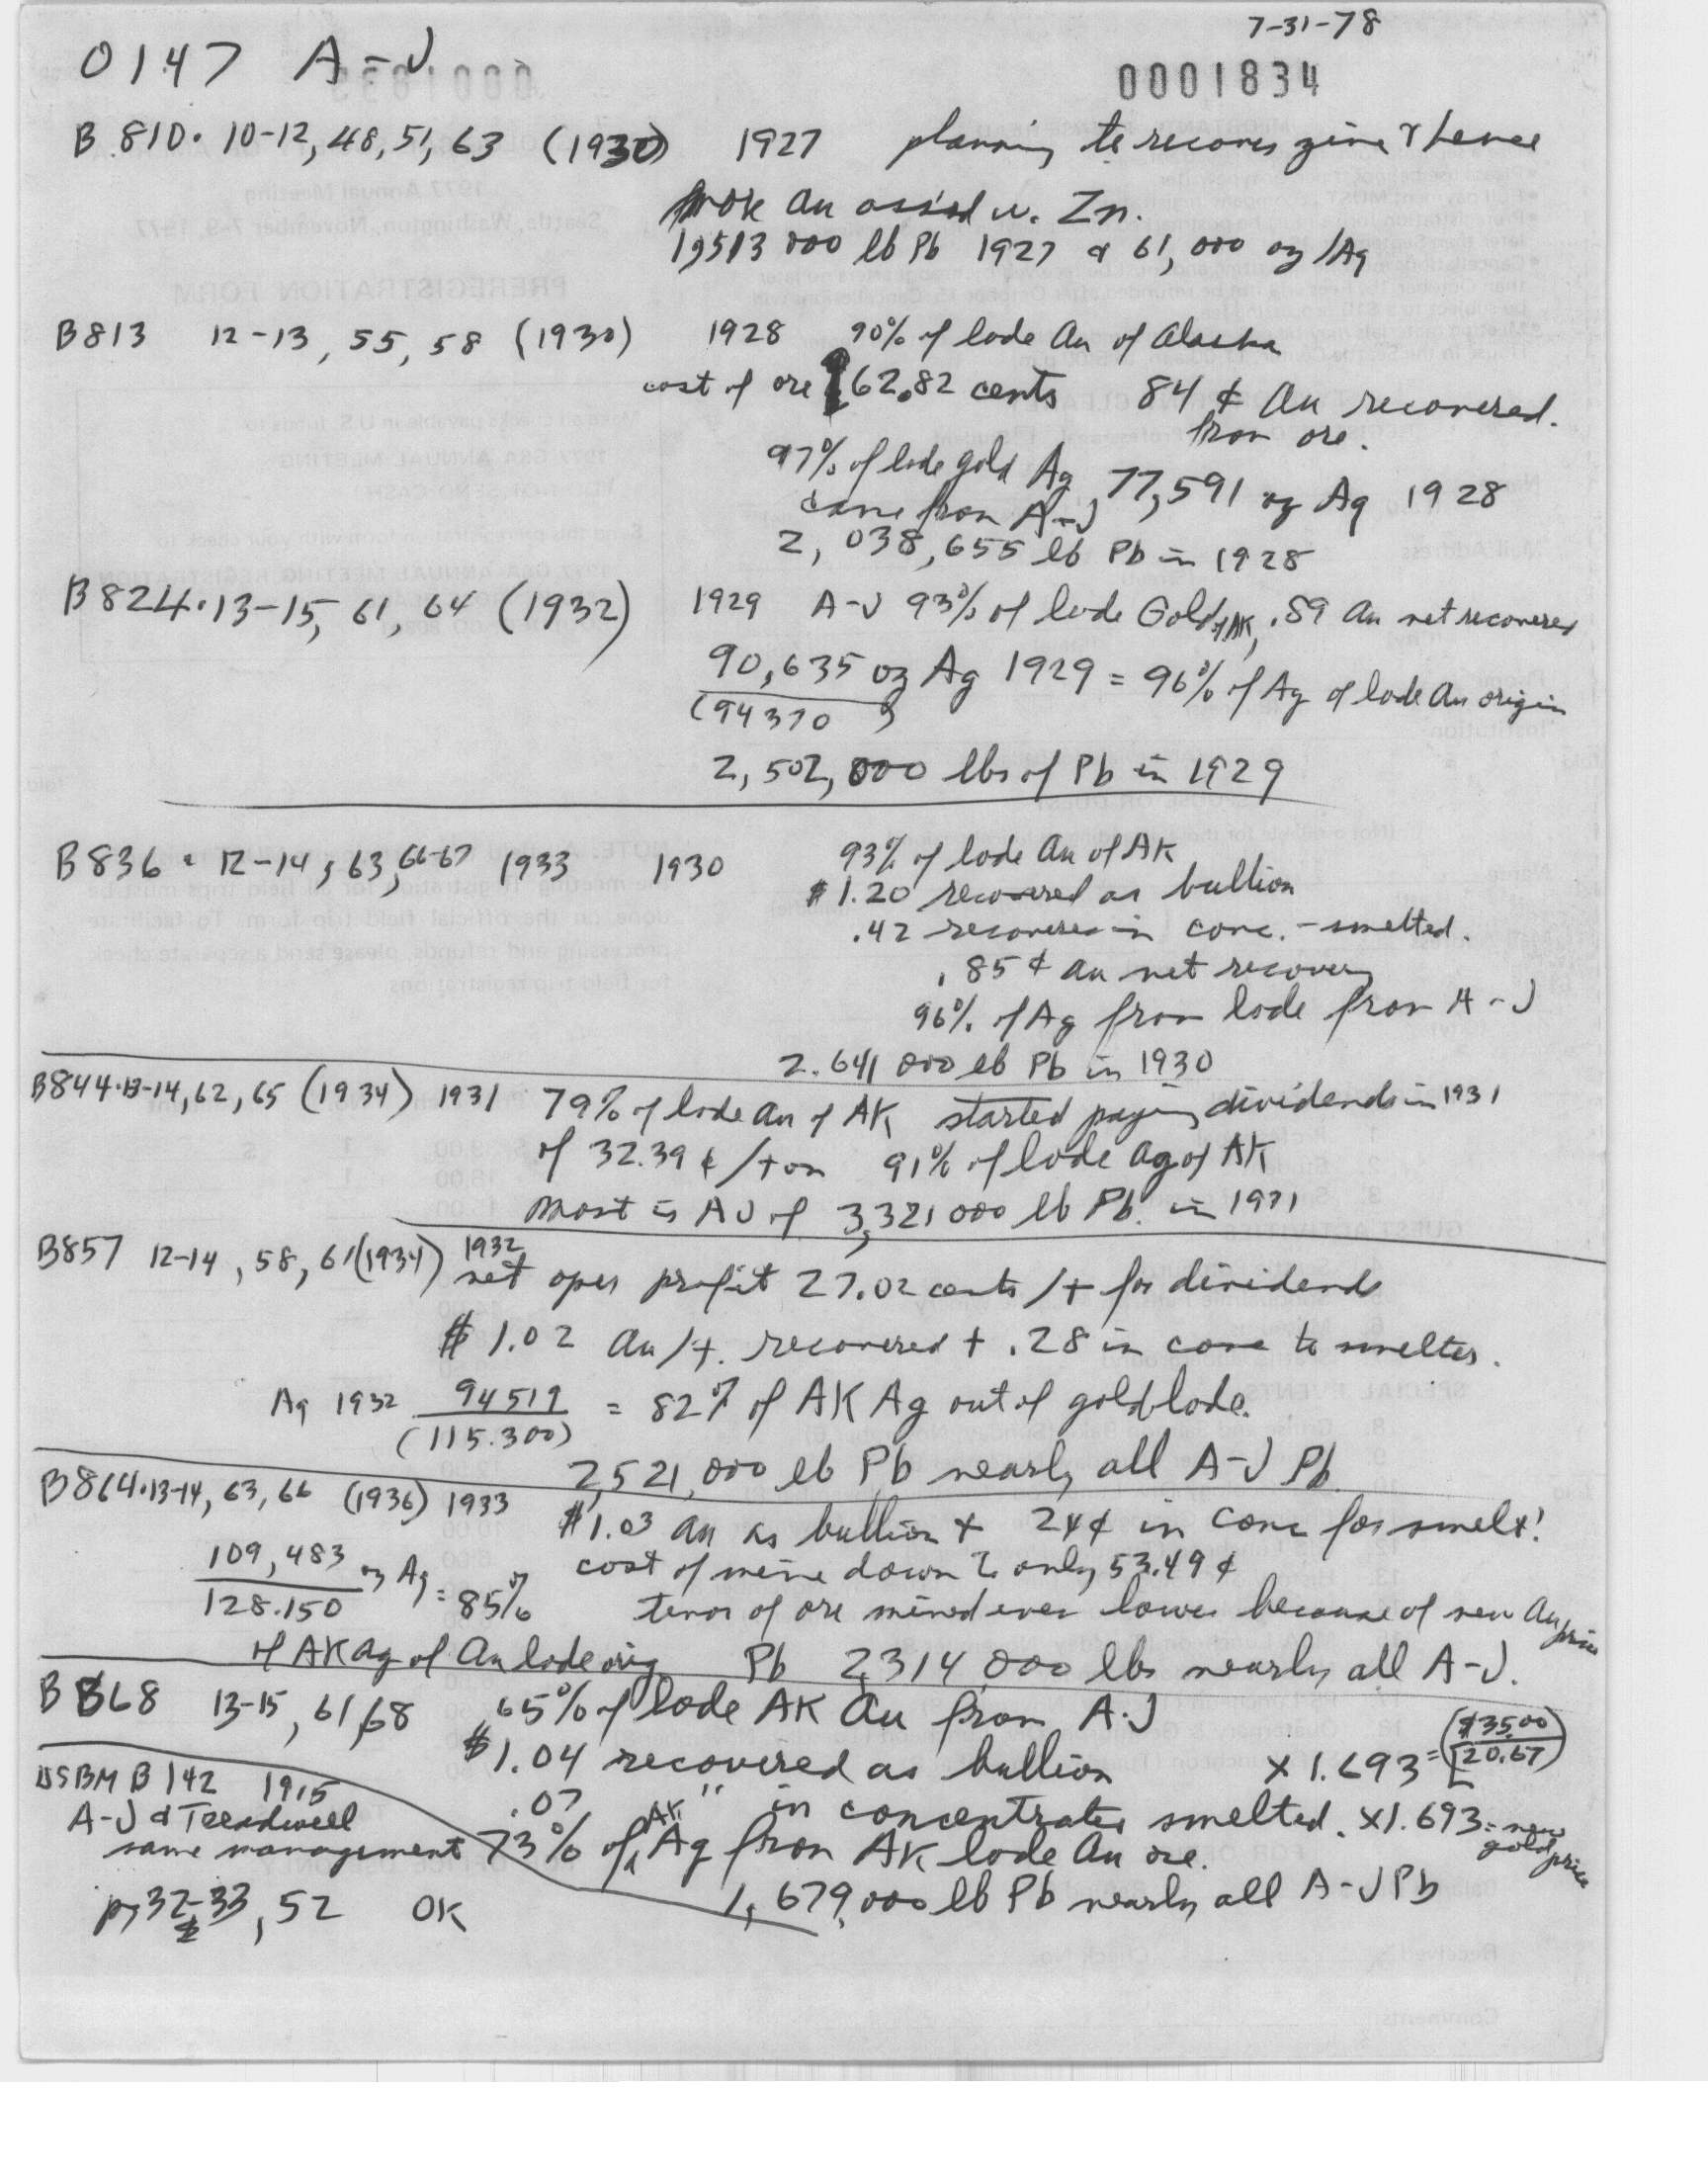 7-31-78
0147 A-J
0001834
B 810. 10-12, 48, 51, 63 (1930) 1927 planning to recover zinc & hence
more Au assoc'd w. Zn.
1,513 000 lb Pb 1927 & 61,000 oz Ag
B813 12-13, 55, 58 (1930) 1928 90% of lode Au of Alaska
cost of ore 62.82 cents 84 ¢ Au recovered.
from ore.
97% of lode gold Ag 77,591 oz Ag 1928
came from A-J
2,038,655 lb Pb in 1928
B824.13-15, 61, 64 (1932) 1929 A-J 93% of lode Gold of AK, .89 Au net recovered
90,635 oz Ag 1929 = 96% of Ag of lode Au origin
(94370)
2,502,000 lbs of Pb in 1929
B836. 12-14, 63, 66-67 1933 1930 93% of lode Au of AK
$1.20 recovered as bullion
.42 recovered in conc. - smelted.
.85 ¢ Au net recovery
96% of Ag from lode from A-J
2.641 000 lb Pb in 1930
B844.13-14, 62, 65 (1934) 1931 79% of lode Au of AK started paying dividends in 1931
of 32.39 ¢/ton 91% of lode Ag of AK
most is AJ of 3,321 000 lb Pb. in 1931
B857 12-14, 58, 61 (1934) 1932
net oper profit 27.02 cents /t for dividends
$1.02 Au/t. recovered + .28 in conc to smelter.
Ag 1932 94519 = 82% of AK Ag out of gold lode.
(115.300)
2,521,000 lb Pb nearly all A-J Pb
B864.13-14, 63, 66 (1936) 1933 $1.03 Au as bullion + 24¢ in conc for smelt!
109,483 oz Ag = 85% cost of mine down to only 53.49 ¢
128.150 tenor of ore mined ever lower because of new Au price
of AK Ag of Au lode orig Pb 2,314,000 lbs nearly all A-J.
B 868 13-15, 61, 68 65% of lode AK Au from A.J
$1.04 recovered as bullion x 1.693 = ($35.00)
[20.67)
USBM B 142 1915
.07 " in concentrates smelted. x1.693 = new gold price
A-J & Treadwell
same management 73% of AK Ag from AK lode Au ore.
p, 32-33, 52 OK 1,679,000 lb Pb nearly all A-J Pb